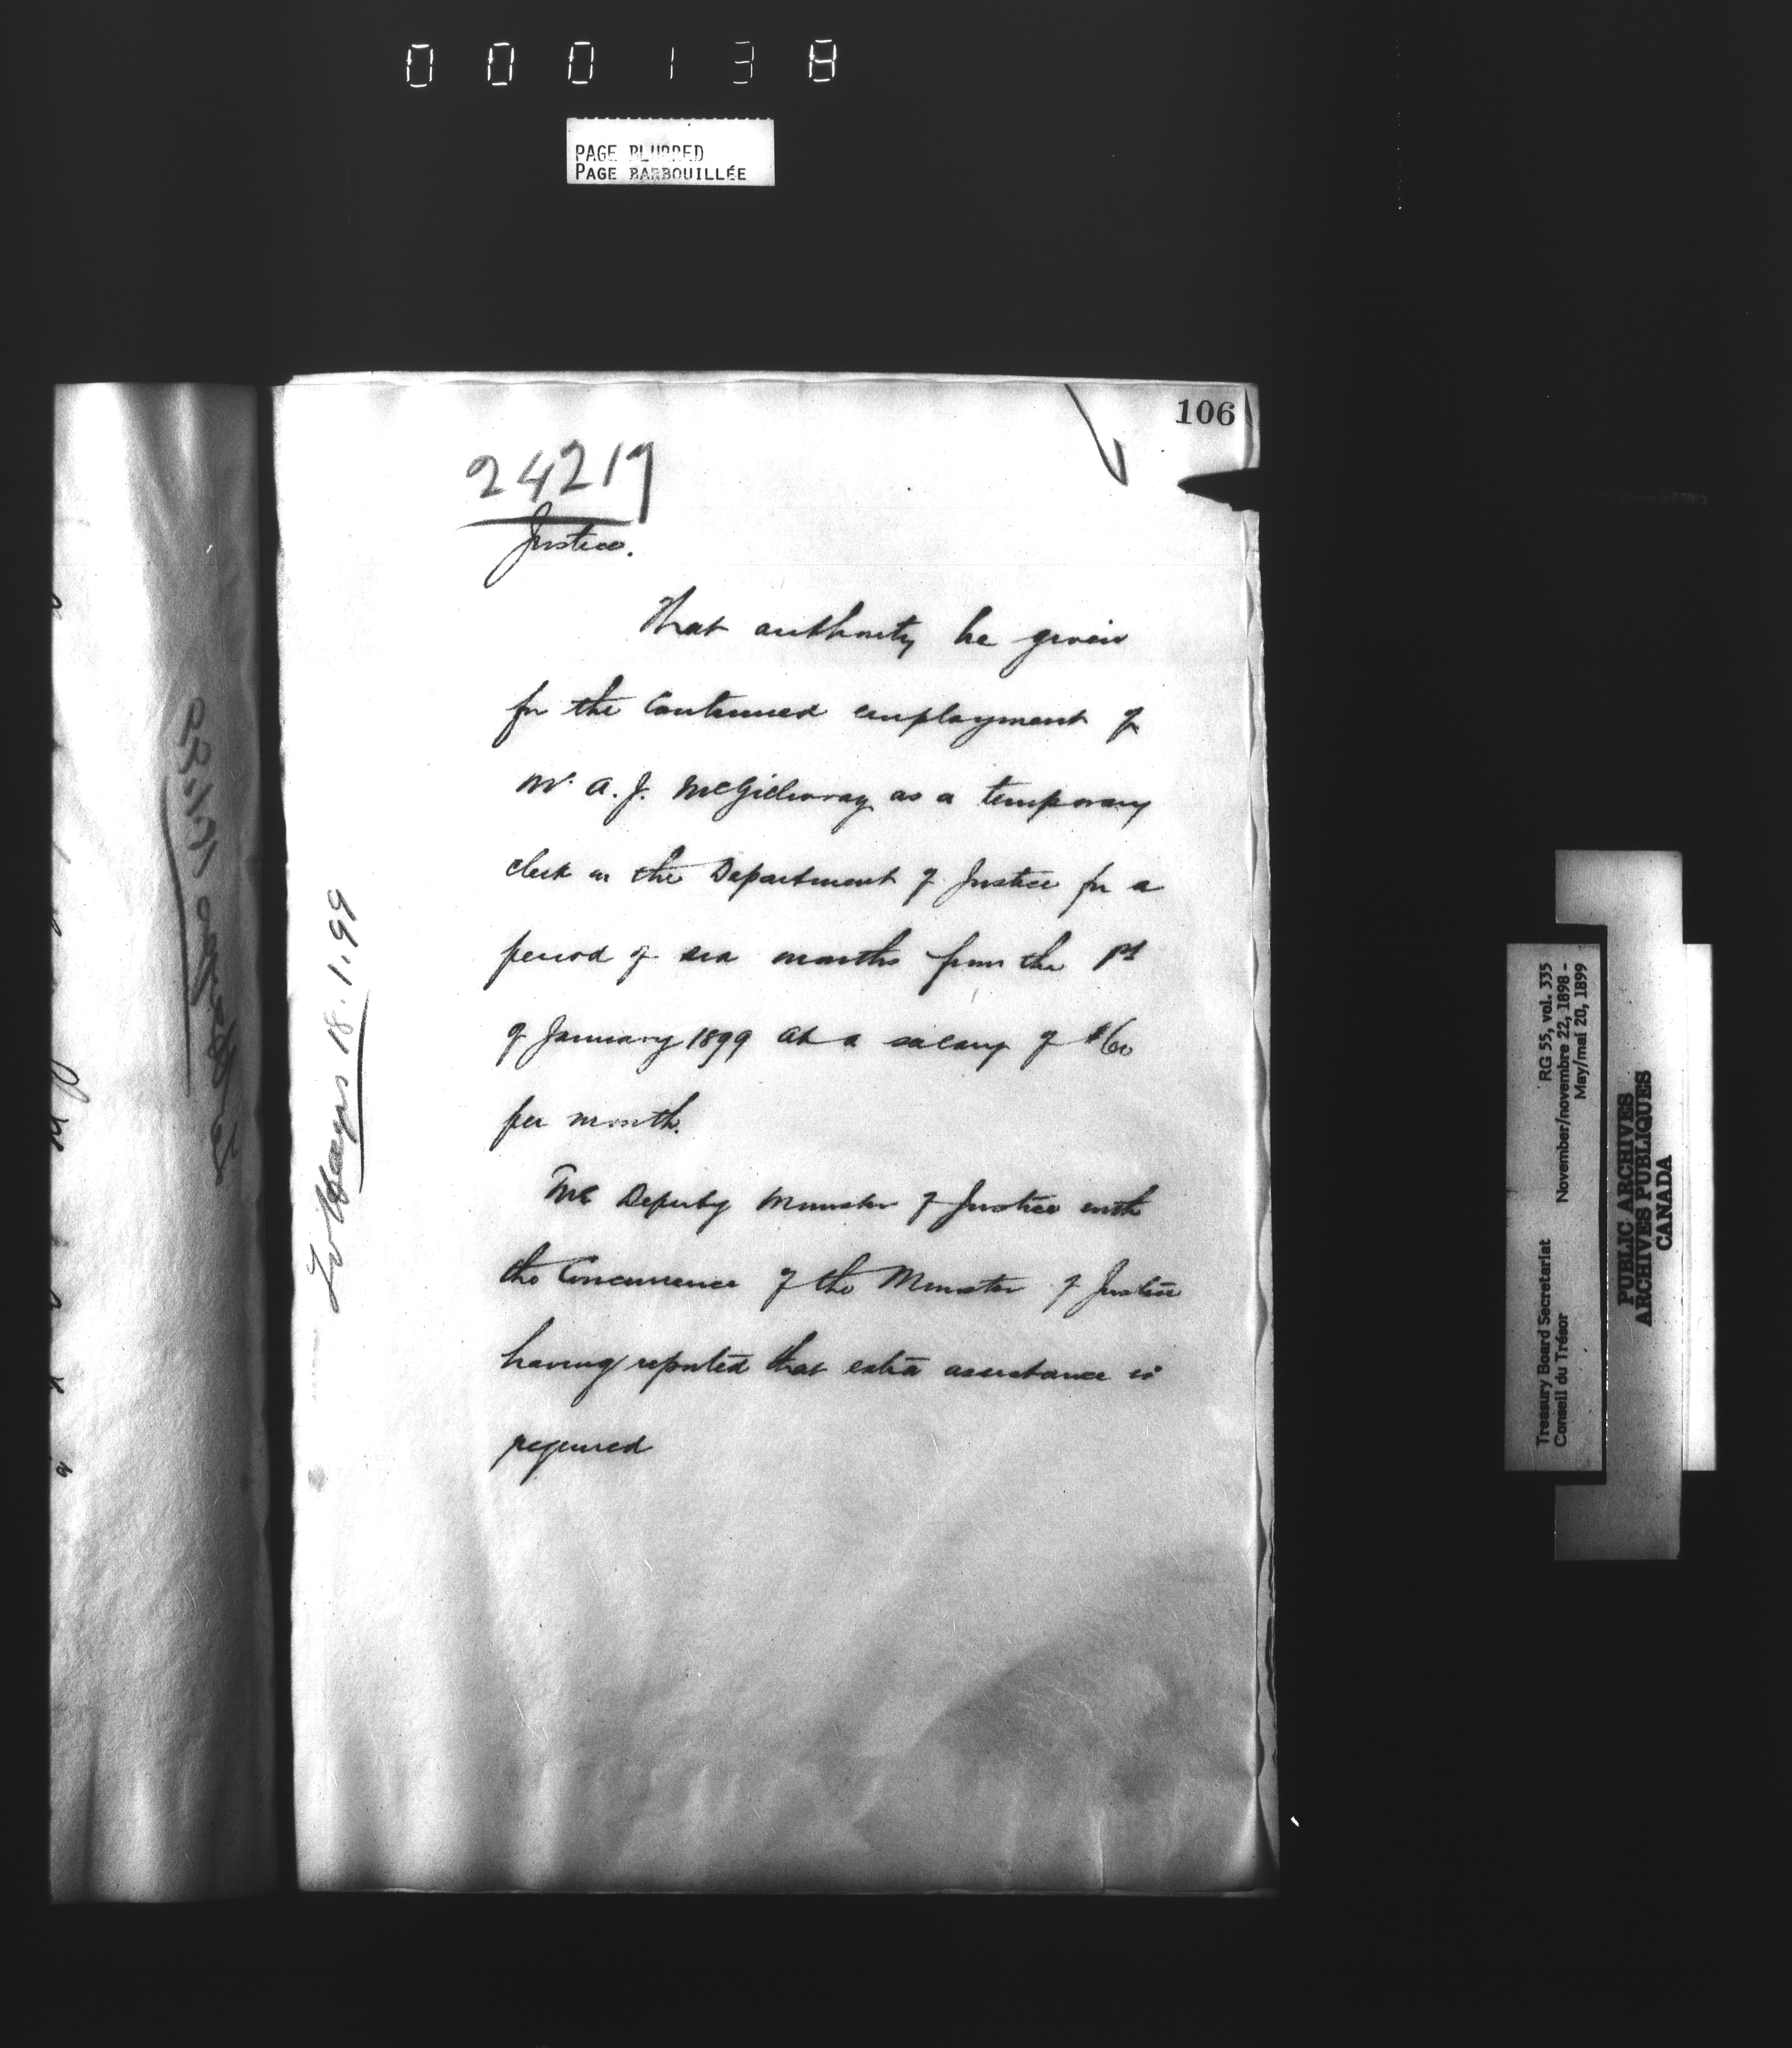 000138
PAGE BLURRED
PAGE BARBOUILLÉE
106
24219
Justice.
That authority be given
for the Continued employment of
Mr A. J. McGillivray as a temporary
clerk in the Department of Justice for a
period of six months from the 1st
of January 1899 at a salary of $60
per month.
The Deputy Minister of Justice with
the Concurrence of the Minister of Justice
having reported that extra assistance is
required
18.1.99
Treasury Board Secretariat RG 55, vol. 335
Conseil du Trésor November/novembre 22, 1898 -
May/mai 20, 1899
PUBLIC ARCHIVES
ARCHIVES PUBLIQUES
CANADA